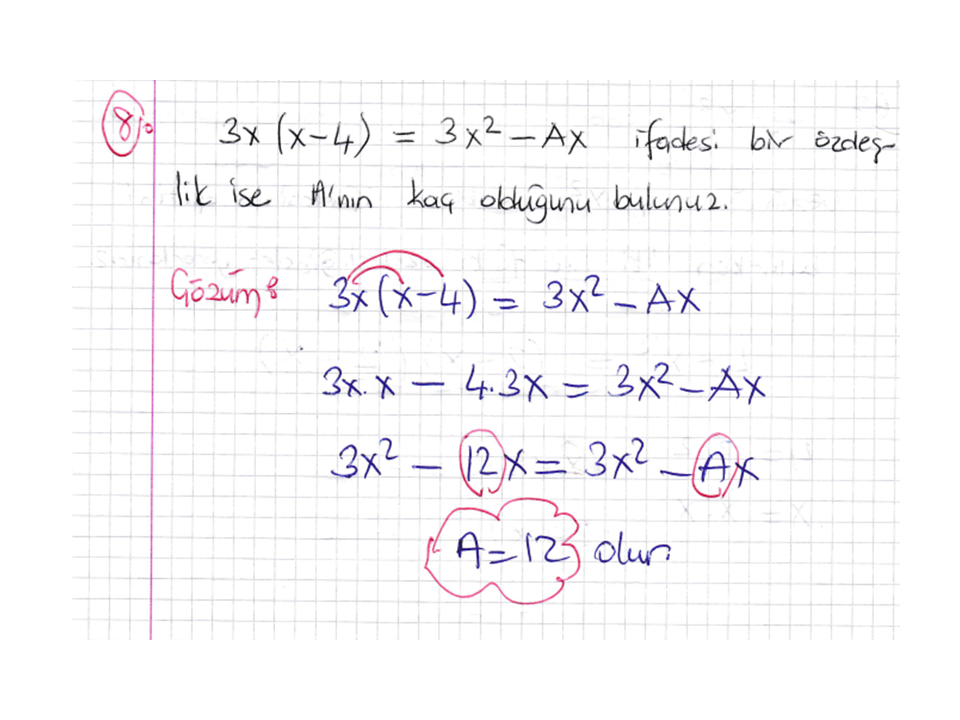 8) 3x(x-4) = 3x² - Ax ifadesi bir özdeş-
lik ise A'nın kaç olduğunu bulunuz.
Çözüm: 3x(x-4) = 3x² - Ax
3x.x - 4.3x = 3x² - Ax
3x² - 12x = 3x² - Ax
A=12 olur.